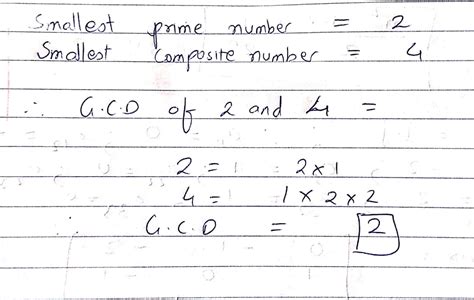 Smallest prime number = 2
Smallest composite number = 4
∴ G.C.D of 2 and 4 =
2 = 2 x 1
4 = 1 x 2 x 2
∴ G.C.D = 2